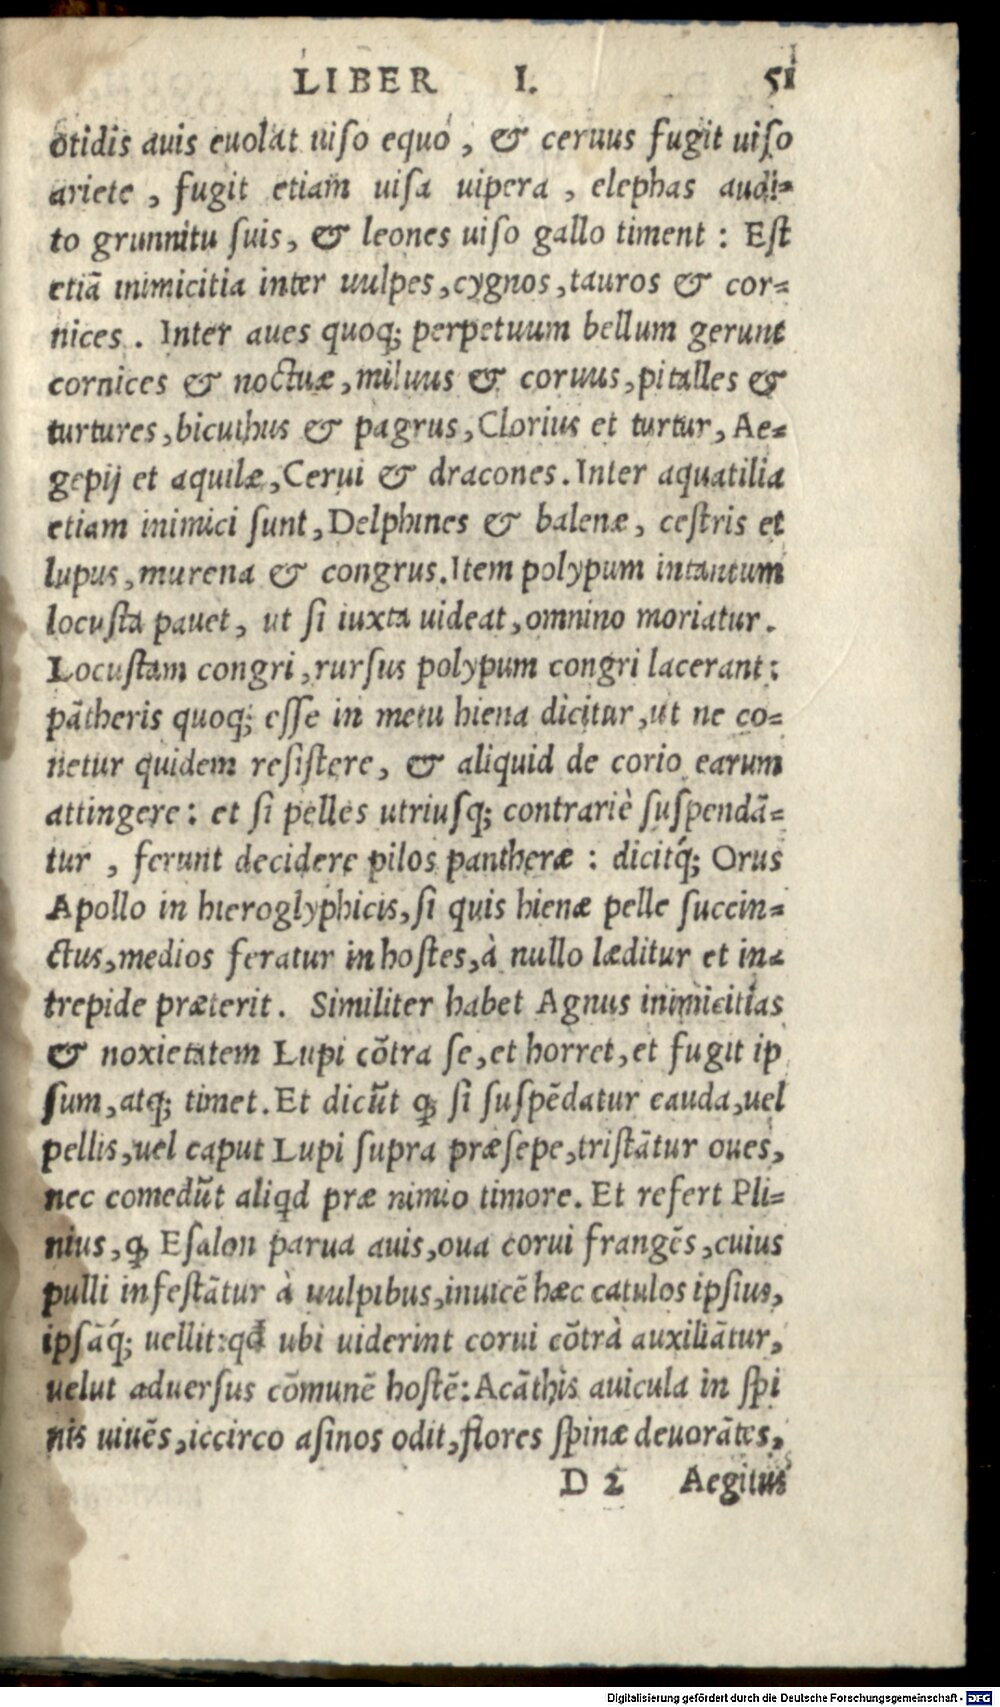 LIBER I. 51
otidis auis euolat uiſo equo, & ceruus fugit uiſo
ariete, fugit etiam uiſa uipera, elephas audi-
to grunnitu ſuis, & leones uiſo gallo timent: Eſt
etiã inimicitia inter uulpes, cygnos, tauros & cor-
nices. Inter aues quoq; perpetuum bellum gerunt
cornices & noctuæ, miluus & coruus, pitalles &
turtures, bicuthus & pagrus, Clorius et turtur, Ae-
gepij et aquilæ, Cerui & dracones. Inter aquatilia
etiam inimici ſunt, Delphines & balenæ, ceſtris et
lupus, murena & congrus. Item polypum intantum
locuſta pauet, ut ſi iuxta uideat, omnino moriatur.
Locuſtam congri, rurſus polypum congri lacerant:
pãtheris quoq; eſſe in metu hiena dicitur, ut ne co-
netur quidem reſiſtere, & aliquid de corio earum
attingere: et ſi pelles utriuſq; contrariè ſuſpendã-
tur, ferunt decidere pilos pantheræ: dicitq́; Orus
Apollo in hieroglyphicis, ſi quis hienæ pelle ſuccin-
ctus, medios feratur in hoſtes, à nullo læditur et in-
trepide præterit. Similiter habet Agnus inimicitias
& noxietatem Lupi cõtra ſe, et horret, et fugit ip
ſum, atq; timet. Et dicũt ꝙ ſi ſuſpẽdatur cauda, uel
pellis, uel caput Lupi ſupra præſepe, triſtãtur oues,
nec comedũt aliqd præ nimio timore. Et refert Pli-
nius, ꝙ Eſalon parua auis, oua corui frangẽs, cuius
pulli infeſtãtur à uulpibus, inuicẽ hæc catulos ipſius,
ipſãq́; uellit: qd ubi uiderint corui cõtrà auxiliãtur,
uelut aduerſus cõmunẽ hoſtẽ: Acãthis auicula in ſpi
nis uiuẽs, iccirco aſinos odit, flores ſpinæ deuorãtes,
D 2 Aegitus
Digitalisierung gefördert durch die Deutsche Forschungsgemeinschaft - DFG